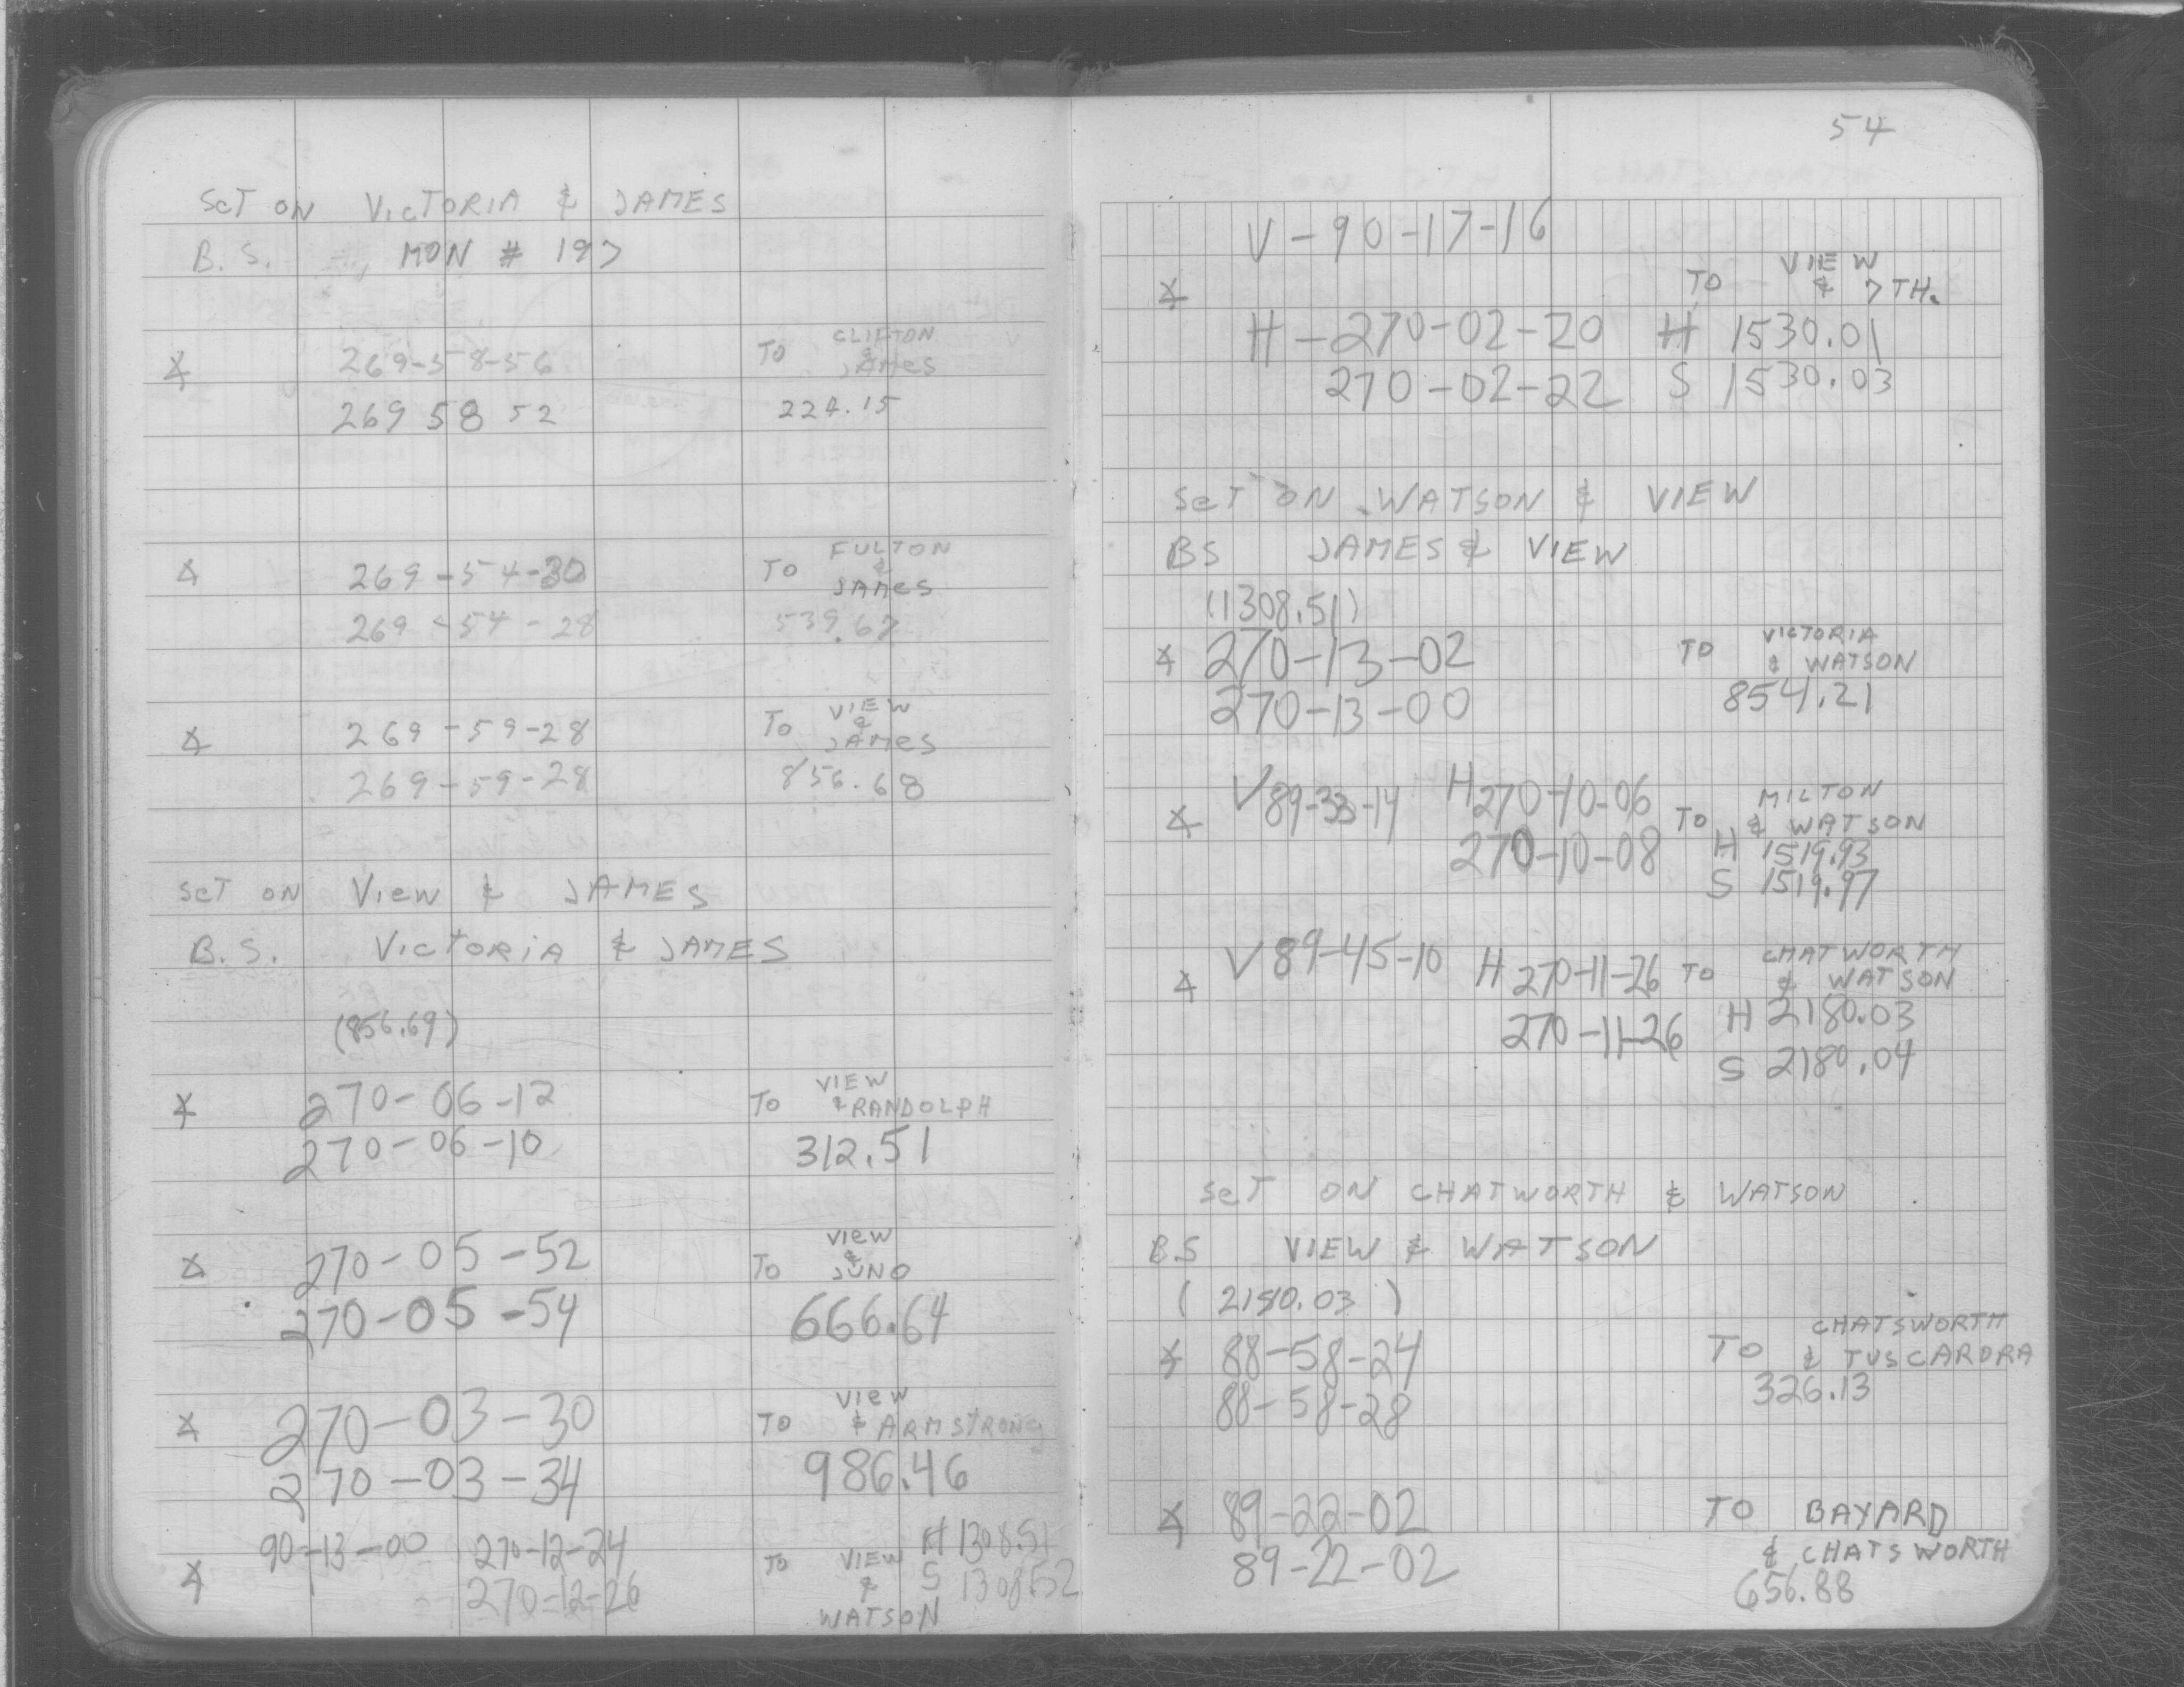 SET ON VICTORIA & JAMES
B.S. MON # 197
∡ 269-58-56 TO CLIFTON & JAMES
269 58 52 224.15
∡ 269-54-30 TO FULTON & JAMES
269-54-28 539.67
∡ 269-59-28 TO VIEW & JAMES
269-59-28 856.68
SET ON VIEW & JAMES
B.S. VICTORIA & JAMES
(856.69)
∡ 270-06-12 TO VIEW & RANDOLPH
270-06-10 312.51
∡ 270-05-52 TO VIEW & JUNO
270-05-54 666.64
∡ 270-03-30 TO VIEW & ARMSTRONG
270-03-34 986.46
∡ 90-13-00 270-12-24 TO VIEW & WATSON H 1308.51
270-12-26 S 1308.52
54
V-90-17-16
∡ TO VIEW & 7TH.
H-270-02-20 H 1530.01
270-02-22 S 1530.03
SET ON WATSON & VIEW
BS JAMES & VIEW
(1308.51)
∡ 270-13-02 TO VICTORIA & WATSON
270-13-00 854.21
∡ V 89-33-14 H 270-10-06 TO MILTON & WATSON
270-10-08 H 1519.93
S 1519.97
∡ V 89-45-10 H 270-11-26 TO CHATWORTH & WATSON
270-11-26 H 2180.03
S 2180.04
SET ON CHATWORTH & WATSON
B.S VIEW & WATSON
(2180.03)
∡ 88-58-24 TO CHATSWORTH & TUSCARORA
88-58-28 326.13
∡ 89-22-02 TO BAYARD & CHATSWORTH
89-22-02 656.88